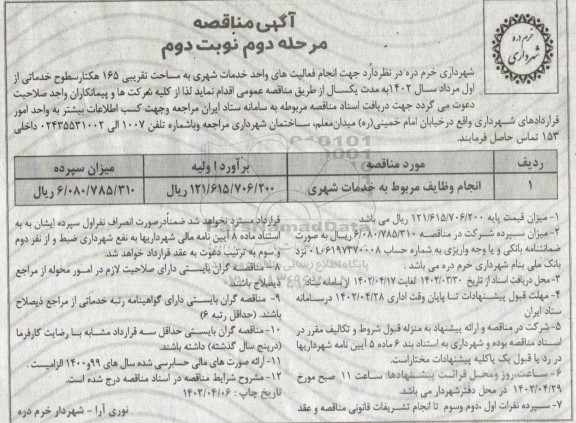 آگهی مناقصه
مرحله دوم نوبت دوم
خرم دره
شهرداری
شهرداری خرم دره در نظردارد جهت انجام فعالیت های واحد خدمات شهری به مساحت تقریبی ۱۶۵ هکتارسطوح خدماتی از
اول مرداد سال ۱۴۰۲به مدت یکسال از طریق مناقصه عمومی اقدام نماید لذا از کلیه شرکت ها و پیمانکاران واجد صلاحیت
دعوت می گردد جهت دریافت اسناد مناقصه مربوطه به سامانه ستاد ایران مراجعه وجهت کسب اطلاعات بیشتر به واحد امور
قراردادهای شهرداری واقع درخیابان امام خمینی(ره) میدان معلم، ساختمان شهرداری مراجعه وباشماره تلفن ۱۰۰۷ الی ۰۲۴۳۵۵۳۱۰۰۲ داخلی
۱۵۳ تماس حاصل فرمایند.
ردیف مورد مناقصه برآورد اولیه میزان سپرده
۱ انجام وظایف مربوط به خدمات شهری ۱۲۱/۶۱۵/۷۰۶/۲۰۰ ریال ۶/۰۸۰/۷۸۵/۳۱۰ ریال
۱- میزان قیمت پایه ۱۲۱/۶۱۵/۷۰۶/۲۰۰ ریال می باشد
۲- میزان سپرده شرکت در مناقصه ۶/۰۸۰/۷۸۵/۳۱۰ ریال به صورت
ضمانتنامه بانکی و یا وجه واریزی به شماره حساب ۰۱۰۶۱۹۷۳۷۰۰۰۸ نزد
بانک ملی بنام شهرداری خرم دره می باشد.
۳- محل دریافت اسناد از تاریخ ۱۴۰۲/۰۳/۳۰ لغایت ۱۴۰۲/۰۴/۱۷ از سامانه ستاد
۴- مهلت قبول پیشنهادات تا پایان وقت اداری ۱۴۰۲/۰۴/۲۸ درسامانه
ستاد ایران
۵- شرکت در مناقصه و ارائه پیشنهاد به منزله قبول شروط و تکالیف مقرر در
اسناد مناقصه بوده و شهرداری به استناد بند ۶ ماده ۵ آیین نامه شهرداریها
در رد یا قبول یک یاکلیه پیشنهادات مختاراست.
۶- ساعت،روز ومحل قرائت پیشنهادها: ساعت ۱۱ صبح مورخ
۱۴۰۲/۰۴/۲۹ در محل دفترشهردار می باشد.
۷- سپرده نفرات اول ،دوم وسوم تا انجام تشریفات قانونی مناقصه و عقد
قرارداد مسترد نخواهد شد ضمنادرصورت انصراف نفراول سپرده ایشان به
استناد ماده ۸ آیین نامه مالی شهرداریها به نفع شهرداری ضبط و از نفر دوم
و سوم به ترتیب دعوت به عقد قرارداد خواهد شد.
۸- مناقصه گران بایستی دارای صلاحیت لازم در امور محوله از مراجع
ذیصلاح باشند.
۹- مناقصه گران بایستی دارای گواهینامه رتبه خدماتی از مراجع ذیصلاح
باشند. (حداقل رتبه ۶)
۱۰- مناقصه گران بایستی حداقل سه قرارداد مشابه با رضایت کارفرما
(درپنج سال گذشته) داشته باشند.
۱۱- ارائه صورت های مالی حسابرسی شده سال های ۹۹و۱۴۰۰ الزامیست.
۱۲- مشروح شرایط مناقصه در اسناد مناقصه درج شده است.
تاریخ چاپ : ۱۴۰۲/۰۴/۰۶
نوری آرا - شهردار خرم دره